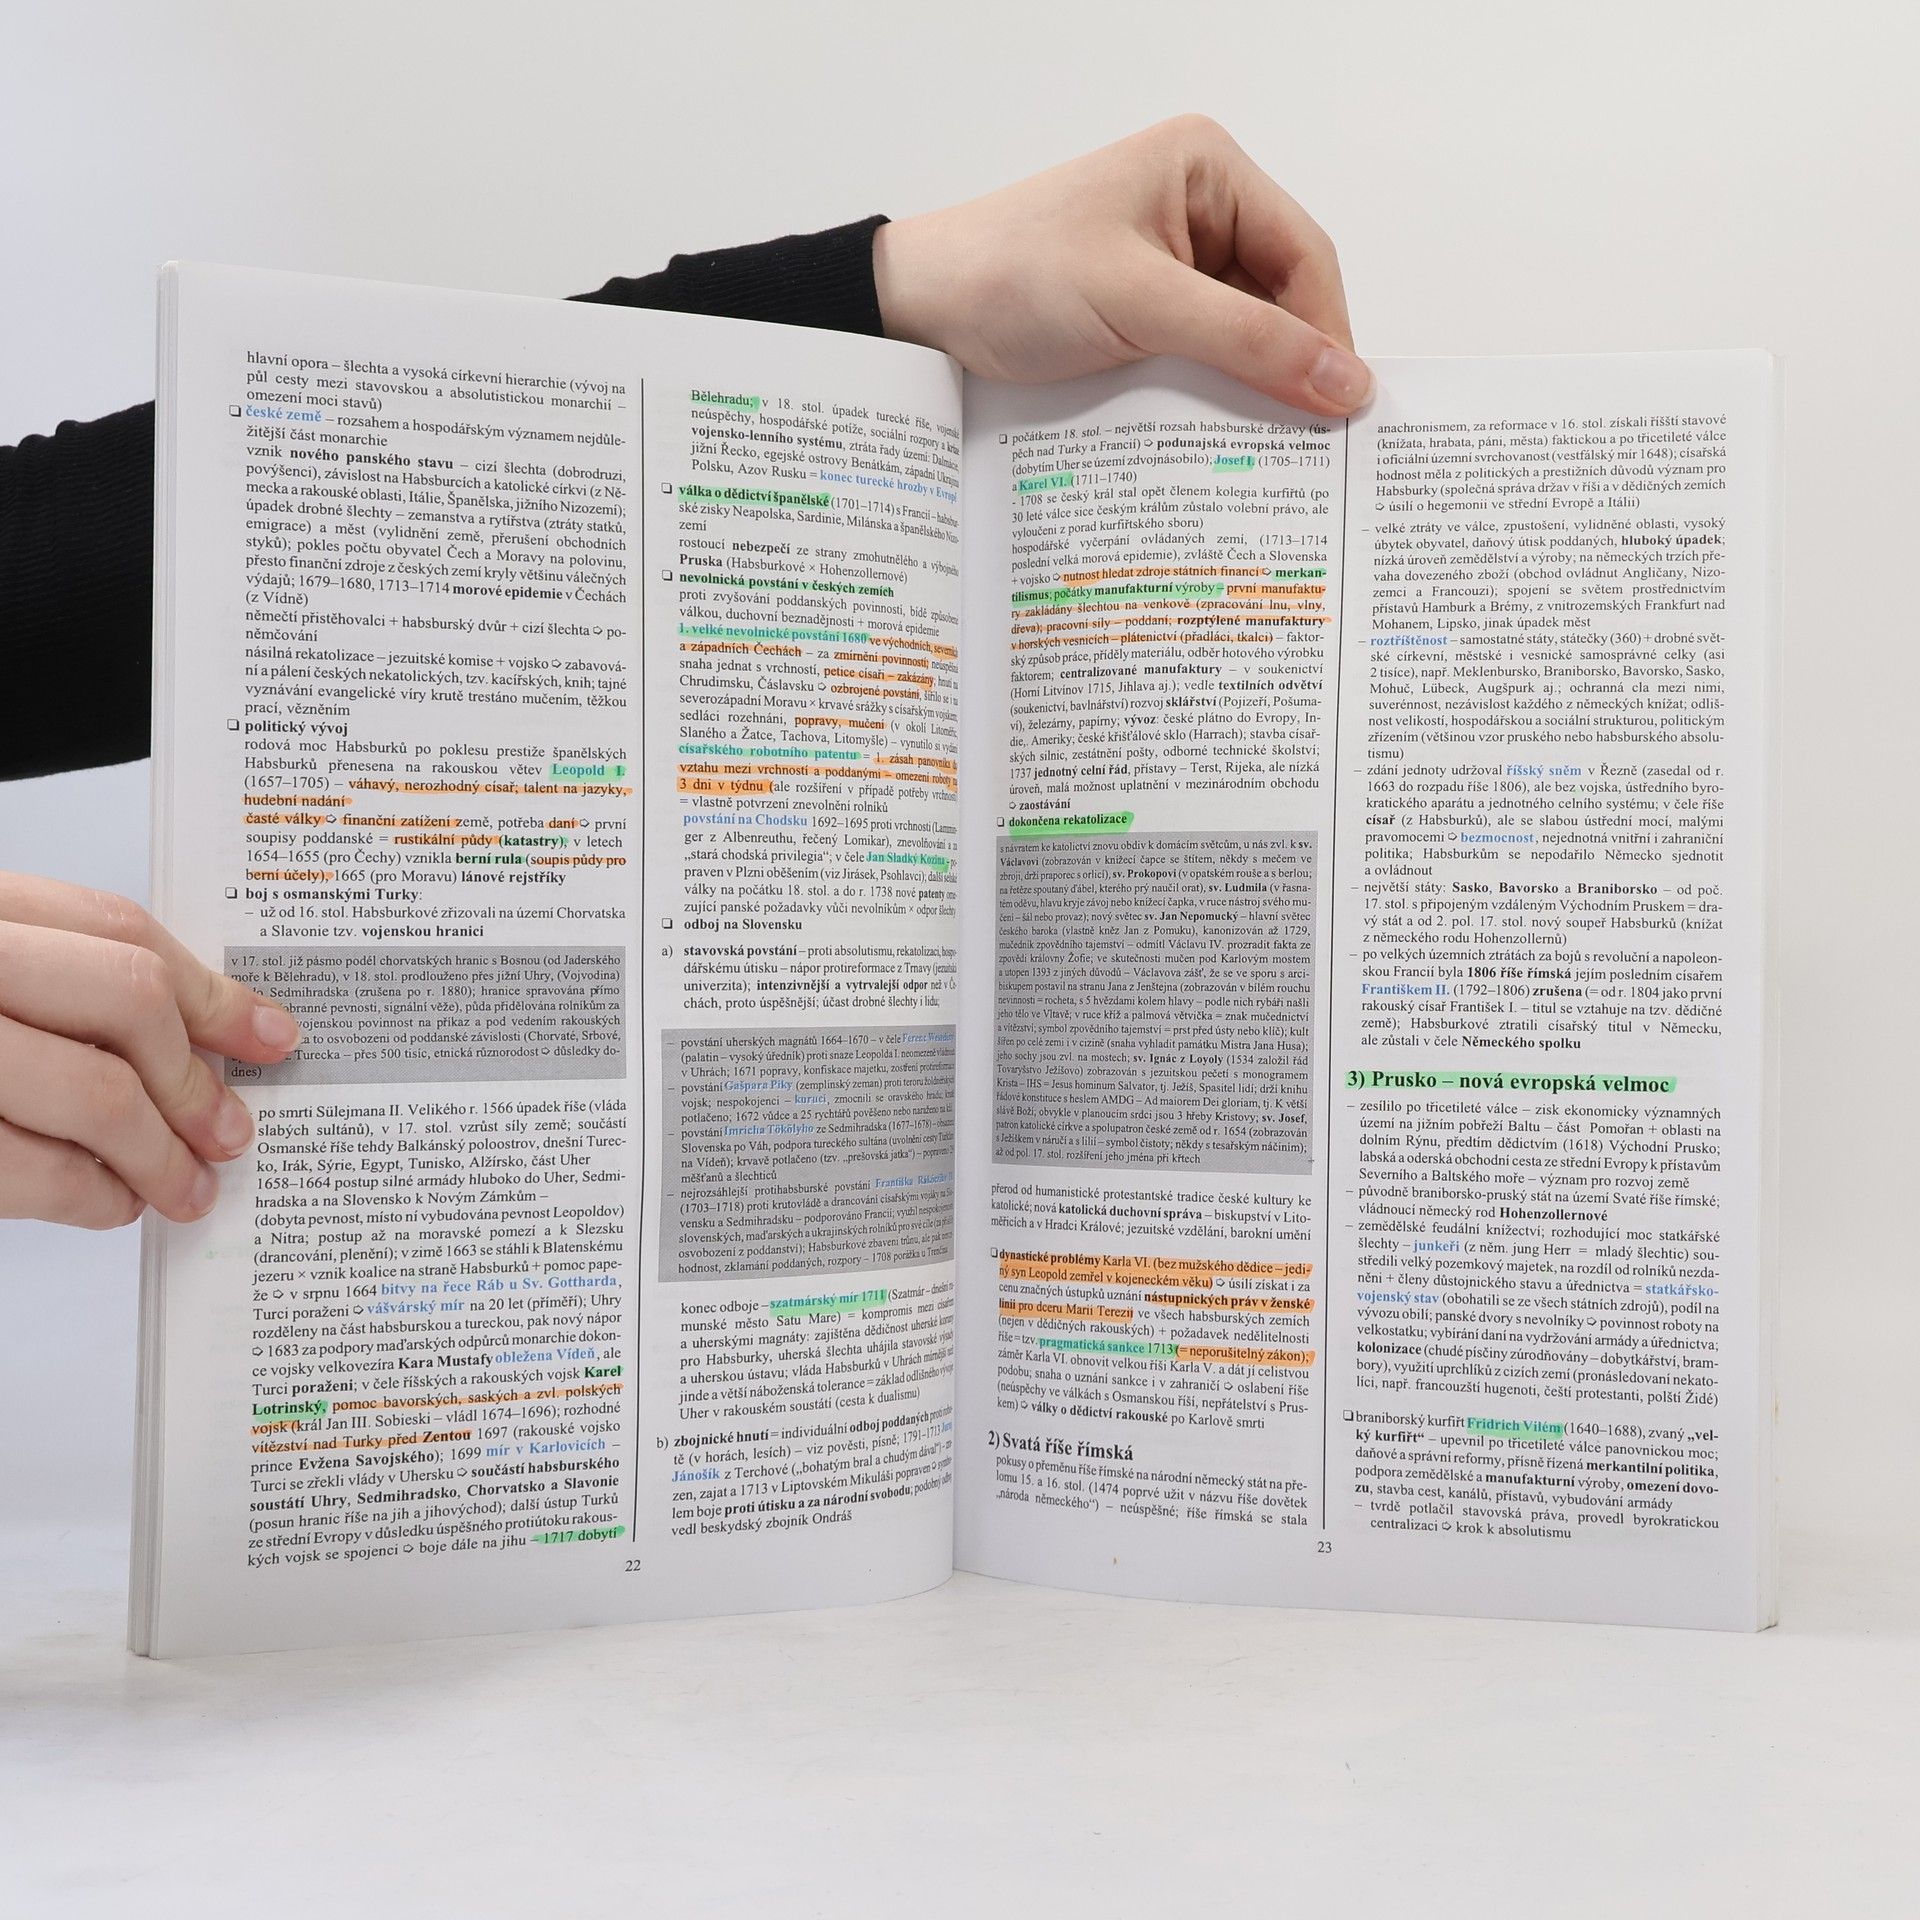 hlavní opora – šlechta a vysoká církevní hierarchie (vývoj na
půl cesty mezi stavovskou a absolutistickou monarchií –
omezení moci stavů)
❑ české země – rozsahem a hospodářským významem nejdůle-
žitější část monarchie
vznik nového panského stavu – cizí šlechta (dobrodruzi,
povýšenci), závislost na Habsburcích a katolické církvi (z Ně-
mecka a rakouské oblasti, Itálie, Španělska, jižního Nizozemí);
úpadek drobné šlechty – zemanstva a rytířstva (ztráty statků,
emigrace) a měst (vylidnění země, přerušení obchodních
styků); pokles počtu obyvatel Čech a Moravy na polovinu,
přesto finanční zdroje z českých zemí kryly většinu válečných
výdajů; 1679–1680, 1713–1714 morové epidemie v Čechách
(z Vídně)
němečtí přistěhovalci + habsburský dvůr + cizí šlechta ➩ po-
němčování
násilná rekatolizace – jezuitské komise + vojsko ➩ zabavová-
ní a pálení českých nekatolických, tzv. kacířských, knih; tajné
vyznávání evangelické víry krutě trestáno mučením, těžkou
prací, vězněním
❑ politický vývoj
rodová moc Habsburků po poklesu prestiže španělských
Habsburků přenesena na rakouskou větev Leopold I.
(1657–1705) – váhavý, nerozhodný císař; talent na jazyky,
hudební nadání
časté války ➩ finanční zatížení země, potřeba daní ➩ první
soupisy poddanské = rustikální půdy (katastry), v letech
1654–1655 (pro Čechy) vznikla berní rula (soupis půdy pro
berní účely), 1665 (pro Moravu) lánové rejstříky
❑ boj s osmanskými Turky:
– už od 16. stol. Habsburkové zřizovali na území Chorvatska
a Slavonie tzv. vojenskou hranici
v 17. stol. již pásmo podél chorvatských hranic s Bosnou (od Jaderského
moře k Bělehradu), v 18. stol. prodlouženo přes jižní Uhry, (Vojvodina)
Sedmihradska (zrušena po r. 1880); hranice spravována přímo
obranné pevnosti, signální věže), půda přidělována rolníkům za
vojenskou povinnost na příkaz a pod vedením rakouských
a to osvobozeni od poddanské závislosti (Chorvaté, Srbové,
Turecka – přes 500 tisíc, etnická různorodost ➩ důsledky do-
dnes)
po smrti Sülejmana II. Velikého r. 1566 úpadek říše (vláda
slabých sultánů), v 17. stol. vzrůst síly země; součástí
Osmanské říše tehdy Balkánský poloostrov, dnešní Turec-
ko, Irák, Sýrie, Egypt, Tunisko, Alžírsko, část Uher
1658–1664 postup silné armády hluboko do Uher, Sedmi-
hradska a na Slovensko k Novým Zámkům –
(dobyta pevnost, místo ní vybudována pevnost Leopoldov)
a Nitra; postup až na moravské pomezí a k Slezsku
(drancování, plenění); v zimě 1663 se stáhli k Blatenskému
jezeru × vznik koalice na straně Habsburků + pomoc pape-
že ➩ v srpnu 1664 bitvy na řece Ráb u Sv. Gottharda,
Turci poraženi ➩ vášvárský mír na 20 let (příměří); Uhry
rozděleny na část habsburskou a tureckou, pak nový nápor
➩ 1683 za podpory maďarských odpůrců monarchie dokon-
ce vojsky velkovezíra Kara Mustafy obležena Vídeň, ale
Turci poraženi; v čele říšských a rakouských vojsk Karel
Lotrinský, pomoc bavorských, saských a zvl. polských
vojsk (král Jan III. Sobieski – vládl 1674–1696); rozhodné
vítězství nad Turky před Zentou 1697 (rakouské vojsko
prince Evžena Savojského); 1699 mír v Karlovicích –
Turci se zřekli vlády v Uhersku ➩ součástí habsburského
soustátí Uhry, Sedmihradsko, Chorvatsko a Slavonie
(posun hranic říše na jih a jihovýchod); další ústup Turků
ze střední Evropy v důsledku úspěšného protiútoku rakous-
kých vojsk se spojenci ➩ boje dále na jihu – 1717 dobytí
22
Bělehradu; v 18. stol. úpadek turecké říše, vojenské
neúspěchy, hospodářské potíže, sociální rozpory a krize
vojensko-lenního systému, ztráta řady území: Dalmácie,
jižní Řecko, egejské ostrovy Benátkám, západní Ukrajina
Polsku, Azov Rusku = konec turecké hrozby v Evropě
❑ válka o dědictví španělské (1701–1714) s Francií – habsbur-
ské zisky Neapolska, Sardinie, Milánska a španělského Nizo-
zemí
rostoucí nebezpečí ze strany zmohutnělého a výbojného
Pruska (Habsburkové × Hohenzollernové)
❑ nevolnická povstání v českých zemích
proti zvyšování poddanských povinností, bídě způsobené
válkou, duchovní beznadějnosti + morová epidemie
1. velké nevolnické povstání 1680 ve východních, severních
a západních Čechách – za zmírnění povinností; neúspěšná
snaha jednat s vrchností, petice císaři – zakázány; hnutí na
Chrudimsku, Čáslavsku ➩ ozbrojené povstání, šířilo se i na
severozápadní Moravu × krvavé srážky s císařským vojskem,
sedláci rozehnáni, popravy, mučení (v okolí Litoměřic,
Slaného a Žatce, Tachova, Litomyšle) – vynutilo si vydání
císařského robotního patentu = 1. zásah panovníka do
vztahu mezi vrchností a poddanými – omezení roboty na
3 dni v týdnu (ale rozšíření v případě potřeby vrchnosti)
= vlastně potvrzení znevolnění rolníků
povstání na Chodsku 1692–1695 proti vrchnosti (Lammin-
ger z Albenreuthu, řečený Lomikar), znevolňování a za
„stará chodská privilegia“; v čele Jan Sladký Kozina – po-
praven v Plzni oběšením (viz Jirásek, Psohlavci); další selské
války na počátku 18. stol. a do r. 1738 nové patenty ome-
zující panské požadavky vůči nevolníkům × odpor šlechty
❑ odboj na Slovensku
a) stavovská povstání – proti absolutismu, rekatolizaci, hospo-
dářskému útisku – nápor protireformace z Trnavy (jezuitská
univerzita); intenzivnější a vytrvalejší odpor než v Če-
chách, proto úspěšnější; účast drobné šlechty i lidu;
– povstání uherských magnátů 1664–1670 – v čele Ferenc
(palatin – vysoký úředník) proti snaze Leopolda I. neomezeně vládnout
v Uhrách; 1671 popravy, konfiskace majetku, zostření protireformace
– povstání Gašpara Piky (zemplínský zeman) proti teroru žoldnéřských
vojsk; nespokojenci – kuruci, zmocnili se oravského hradu, krutě
potlačeno; 1672 vůdce a 25 rychtářů pověšeno nebo naraženo na kůl
– povstání Imricha Tökölyho ze Sedmihradska (1677–1678) – obsazení
Slovenska po Váh, podpora tureckého sultána (uvolnění cesty Turkům
na Vídeň); krvavě potlačeno (tzv. „prešovská jatka“) – popraveno
měšťanů a šlechticů
– nejrozsáhlejší protihabsburské povstání Františka Rákócziho II.
(1703–1718) proti krutovládě a drancování císařskými vojáky na Slo-
vensku a Sedmihradsku – podporováno Francií; využil nespokojenosti
slovenských, maďarských a ukrajinských rolníků pro své cíle (za příslib
osvobození z poddanství); Habsburkové zbaveni trůnu, ale pak
hodnost, zklamání poddaných, rozpory – 1708 porážka u Trenčína
konec odboje – szatmárský mír 1711 (Szatmár – dnešní ru-
munské město Satu Mare) = kompromis mezi císařem
a uherskými magnáty: zajištěna dědičnost uherské koruny
pro Habsburky, uherská šlechta uhájila stavovské výsady
a uherskou ústavu; vláda Habsburků v Uhrách mírnější než
jinde a větší náboženská tolerance = základ odlišného vývoje
Uher v rakouském soustátí (cesta k dualismu)
b) zbojnické hnutí = individuální odboj poddaných proti robo-
tě (v horách, lesích) – viz pověsti, písně; 1791–1713 Juraj
Jánošík z Terchové („bohatým bral a chudým dával“) –
zen, zajat a 1713 v Liptovském Mikuláši popraven ➩ symbo-
lem boje proti útisku a za národní svobodu; podobný odboj
vedl beskydský zbojník Ondráš
❑ počátkem 18. stol. – největší rozsah habsburské državy (ús-
pěch nad Turky a Francií) ➩ podunajská evropská velmoc
(dobytím Uher se území zdvojnásobilo); Josef I. (1705–1711)
a Karel VI. (1711–1740)
- 1708 se český král stal opět členem kolegia kurfiřtů (po
30 leté válce sice českým králům zůstalo volební právo, ale
vyloučeni z porad kurfiřtského sboru)
hospodářské vyčerpání ovládaných zemí, (1713–1714
poslední velká morová epidemie), zvláště Čech a Slovenska
+ vojsko ➩ nutnost hledat zdroje státních financí ➩ merkan-
tilismus; počátky manufakturní výroby – první manufaktu-
ry zakládány šlechtou na venkově (zpracování lnu, vlny,
dřeva); pracovní síly – poddaní; rozptýlené manufaktury
v horských vesnicích – plátenictví (přadláci, tkalci) – faktor-
ský způsob práce, příděly materiálu, odběr hotového výrobku
faktorem; centralizované manufaktury – v soukenictví
(Horní Litvínov 1715, Jihlava aj.); vedle textilních odvětví
(soukenictví, bavlnářství) rozvoj sklářství (Pojizeří, Pošuma-
ví), železárny, papírny; vývoz: české plátno do Evropy, In-
die, Ameriky; české křišťálové sklo (Harrach); stavba císař-
ských silnic, zestátnění pošty, odborné technické školství;
1737 jednotný celní řád, přístavy – Terst, Rijeka, ale nízká
úroveň, malá možnost uplatnění v mezinárodním obchodu
➩ zaostávání
❑ dokončena rekatolizace
s návratem ke katolictví znovu obdiv k domácím světcům, u nás zvl. k sv.
Václavovi (zobrazován v knížecí čapce se štítem, někdy s mečem ve
zbroji, drží praporec s orlicí), sv. Prokopovi (v opatském rouše a s berlou;
na řetěze spoutaný ďábel, kterého prý naučil orat), sv. Ludmila (v řasna-
tém oděvu, hlavu kryje závoj nebo knížecí čapka, v ruce nástroj svého mu-
čení – šál nebo provaz); nový světec sv. Jan Nepomucký – hlavní světec
českého baroka (vlastně kněz Jan z Pomuku), kanonizován až 1729,
mučedník zpovědního tajemství – odmítl Václavu IV. prozradit fakta ze
zpovědi královny Žofie; ve skutečnosti mučen pod Karlovým mostem
a utopen 1393 z jiných důvodů – Václavova zášť, že se ve sporu s arci-
biskupem postavil na stranu Jana z Jenštejna (zobrazován v bílém rouchu
nevinnosti = rocheta, s 5 hvězdami kolem hlavy – podle nich rybáři našli
jeho tělo ve Vltavě; v ruce kříž a palmová větvička = znak mučednictví
a vítězství; symbol zpovědního tajemství = prst před ústy nebo klíč); kult
šířen po celé zemi i v cizině (snaha vyhladit památku Mistra Jana Husa);
jeho sochy jsou zvl. na mostech; sv. Ignác z Loyoly (1534 založil řád
Tovaryšstvo Ježíšovo) zobrazován s jezuitskou pečetí s monogramem
Krista – IHS = Jesus hominum Salvator, tj. Ježíš, Spasitel lidí; drží knihu
řádové konstituce s heslem AMDG – Ad maiorem Dei gloriam, tj. K větší
slávě Boží; obvykle v planoucím srdci jsou 3 hřeby Kristovy; sv. Josef,
patron katolické církve a spolupatron české země od r. 1654 (zobrazován
s Ježíškem v náručí a s lilií – symbol čistoty; někdy s tesařským náčiním);
až od pol. 17. stol. rozšíření jeho jména při křtech
přerod od humanistické protestantské tradice české kultury ke
katolické; nová katolická duchovní správa – biskupství v Lito-
měřicích a v Hradci Králové; jezuitské vzdělání, barokní umění
❑ dynastické problémy Karla VI. (bez mužského dědice – jedi-
ný syn Leopold zemřel v kojeneckém věku) ➩ úsilí získat i za
cenu značných ústupků uznání nástupnických práv v ženské
linii pro dceru Marii Terezii ve všech habsburských zemích
(nejen v dědičných rakouských) + požadavek nedělitelnosti
říše = tzv. pragmatická sankce 1713 (= neporušitelný zákon);
záměr Karla VI. obnovit velkou říši Karla V. a dát jí celistvou
podobu; snaha o uznání sankce i v zahraničí ➩ oslabení říše
(neúspěchy ve válkách s Osmanskou říší, nepřátelství s Prus-
kem) ➩ války o dědictví rakouské po Karlově smrti
2) Svatá říše římská
pokusy o přeměnu říše římské na národní německý stát na pře-
lomu 15. a 16. stol. (1474 poprvé užit v názvu říše dovětek
„národa německého“) – neúspěšné; říše římská se stala
23
anachronismem, za reformace v 16. stol. získali říšští stavové
(knížata, hrabata, páni, města) faktickou a po třicetileté válce
i oficiální územní svrchovanost (vestfálský mír 1648); císařská
hodnost měla z politických a prestižních důvodů význam pro
Habsburky (společná správa držav v říši a v dědičných zemích
➩ úsilí o hegemonii ve střední Evropě a Itálii)
– velké ztráty ve válce, zpustošení, vylidněné oblasti, vysoký
úbytek obyvatel, daňový útisk poddaných, hluboký úpadek;
nízká úroveň zemědělství a výroby; na německých trzích pře-
vaha dovezeného zboží (obchod ovládnut Angličany, Nizo-
zemci a Francouzi); spojení se světem prostřednictvím
přístavů Hamburk a Brémy, z vnitrozemských Frankfurt nad
Mohanem, Lipsko, jinak úpadek měst
– roztříštěnost – samostatné státy, státečky (360) + drobné svět-
ské církevní, městské i vesnické samosprávné celky (asi
2 tisíce), např. Meklenbursko, Braniborsko, Bavorsko, Sasko,
Mohuč, Lübeck, Augšpurk aj.; ochranná cla mezi nimi,
suverénnost, nezávislost každého z německých knížat; odliš-
nost velikostí, hospodářskou a sociální strukturou, politickým
zřízením (většinou vzor pruského nebo habsburského absolu-
tismu)
– zdání jednoty udržoval říšský sněm v Řezně (zasedal od r.
1663 do rozpadu říše 1806), ale bez vojska, ústředního byro-
kratického aparátu a jednotného celního systému; v čele říše
císař (z Habsburků), ale se slabou ústřední mocí, malými
pravomocemi ➩ bezmocnost, nejednotná vnitřní i zahraniční
politika; Habsburkům se nepodařilo Německo sjednotit
a ovládnout
– největší státy: Sasko, Bavorsko a Braniborsko – od poč.
17. stol. s připojeným vzdáleným Východním Pruskem = dra-
vý stát a od 2. pol. 17. stol. nový soupeř Habsburků (knížat
z německého rodu Hohenzollernů)
– po velkých územních ztrátách za bojů s revoluční a napoleon-
skou Francií byla 1806 říše římská jejím posledním císařem
Františkem II. (1792–1806) zrušena (= od r. 1804 jako první
rakouský císař František I. – titul se vztahuje na tzv. dědičné
země); Habsburkové ztratili císařský titul v Německu,
ale zůstali v čele Německého spolku
3) Prusko – nová evropská velmoc
– zesílilo po třicetileté válce – zisk ekonomicky významných
území na jižním pobřeží Baltu – část Pomořan + oblasti na
dolním Rýnu, předtím dědictvím (1618) Východní Prusko;
labská a oderská obchodní cesta ze střední Evropy k přístavům
Severního a Baltského moře – význam pro rozvoj země
– původně braniborsko-pruský stát na území Svaté říše římské;
vládnoucí německý rod Hohenzollernové
– zemědělské feudální knížectví; rozhodující moc statkářské
šlechty – junkeři (z něm. jung Herr = mladý šlechtic) sou-
středili velký pozemkový majetek, na rozdíl od rolníků nezda-
něni + členy důstojnického stavu a úřednictva = statkářsko-
vojenský stav (obohatili se ze všech státních zdrojů), podíl na
vývozu obilí; panské dvory s nevolníky ➩ povinnost roboty na
velkostatku; vybírání daní na vydržování armády a úřednictva;
kolonizace (chudé písčiny zúrodňovány – dobytkářství, bram-
bory), využití uprchlíků z cizích zemí (pronásledovaní nekato-
líci, např. francouzští hugenoti, čeští protestanti, polští Židé)
❑ braniborský kurfiřt Fridrich Vilém (1640–1688), zvaný „vel-
ký kurfiřt“ – upevnil po třicetileté válce panovnickou moc;
daňové a správní reformy, přísně řízená merkantilní politika,
podpora zemědělské a manufakturní výroby, omezení dovo-
zu, stavba cest, kanálů, přístavů, vybudování armády
– tvrdě potlačil stavovská práva, provedl byrokratickou
centralizaci ➩ krok k absolutismu